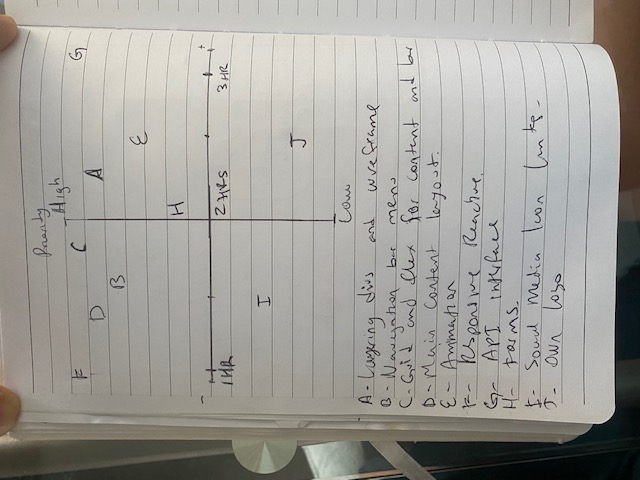 Priority
High
F
C
G
D
A
B
E
H
-
+
1HR
2HRS
3HR
I
J
Low
A - Layering divs and wireframe
B - Navigation bar menu
C - Grid and flex for content and bar
D - Main Content layout.
E - Animation
F - Responsive Reactive.
G - API interface
H - Forms.
I - Social Media Icon links -
J - Own Logo